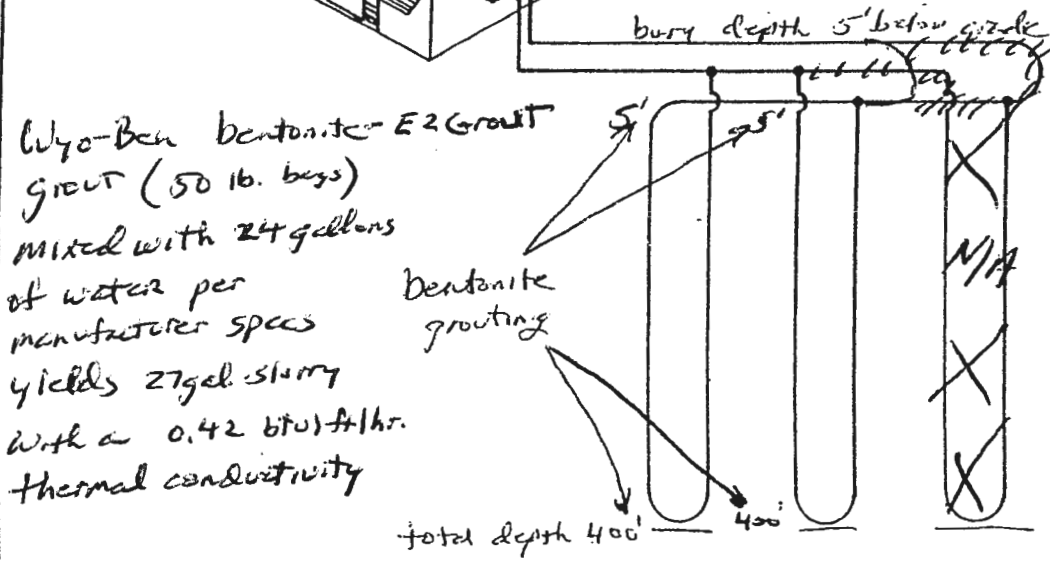 bury depth 5' below grade
Wyo-Ben bentonite - EZ Grout
grout (50 lb. bags)
mixed with 24 gallons
of water per
manufacturer specs
yields 27 gal. slurry
with a 0.42 btu/ft/hr.
thermal conductivity
5'
5'
bentonite
grouting
N/A
total depth 400'
400'